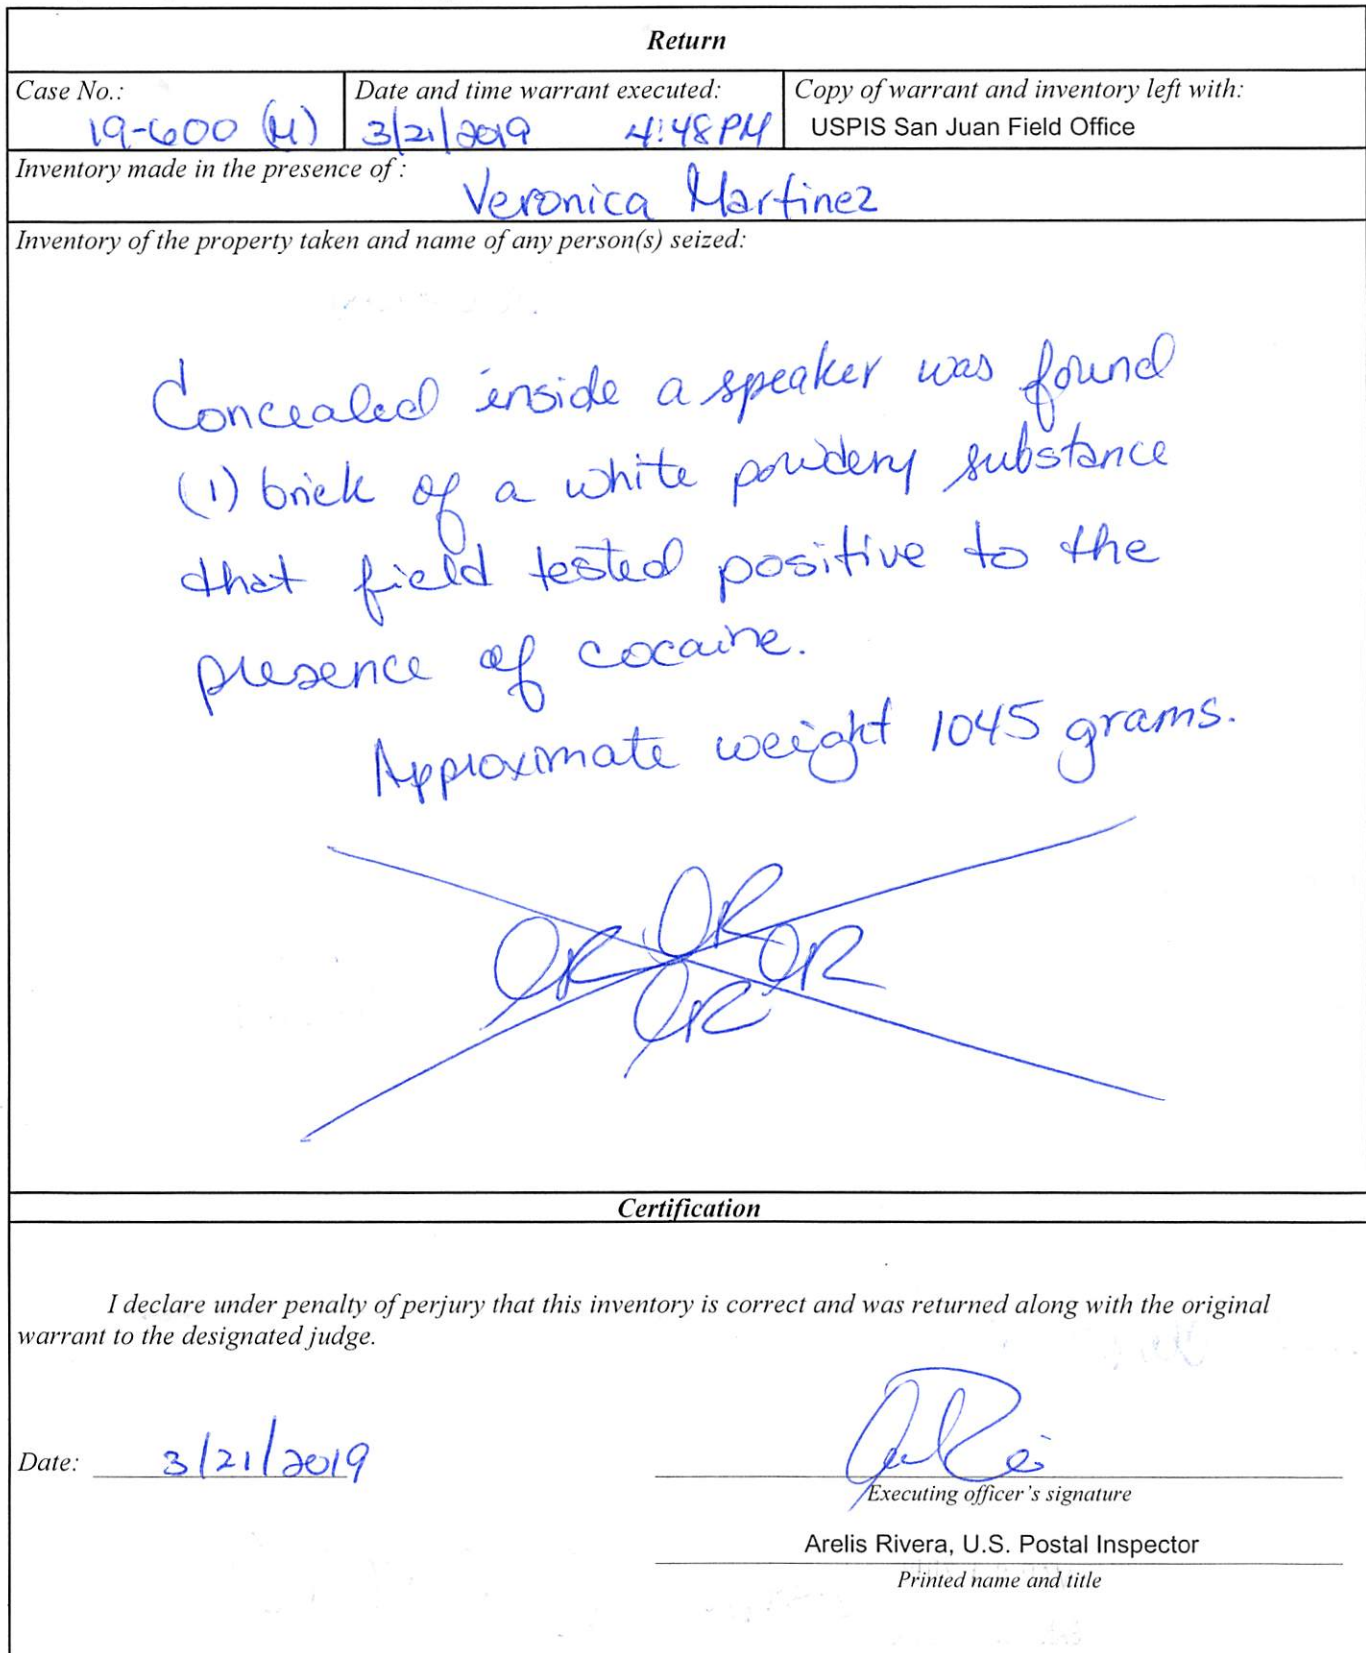 Return
Case No.: Date and time warrant executed: Copy of warrant and inventory left with:
19-600 (M) 3/21/2019 4:48PM USPIS San Juan Field Office
Inventory made in the presence of :
Veronica Martinez
Inventory of the property taken and name of any person(s) seized:
Concealed inside a speaker was found
(1) brick of a white powdery substance
that field tested positive to the
presence of cocaine.
Approximate weight 1045 grams.
AR
AR AR
AR
Certification
I declare under penalty of perjury that this inventory is correct and was returned along with the original
warrant to the designated judge.
Date: 3/21/2019
Executing officer's signature
Arelis Rivera, U.S. Postal Inspector
Printed name and title